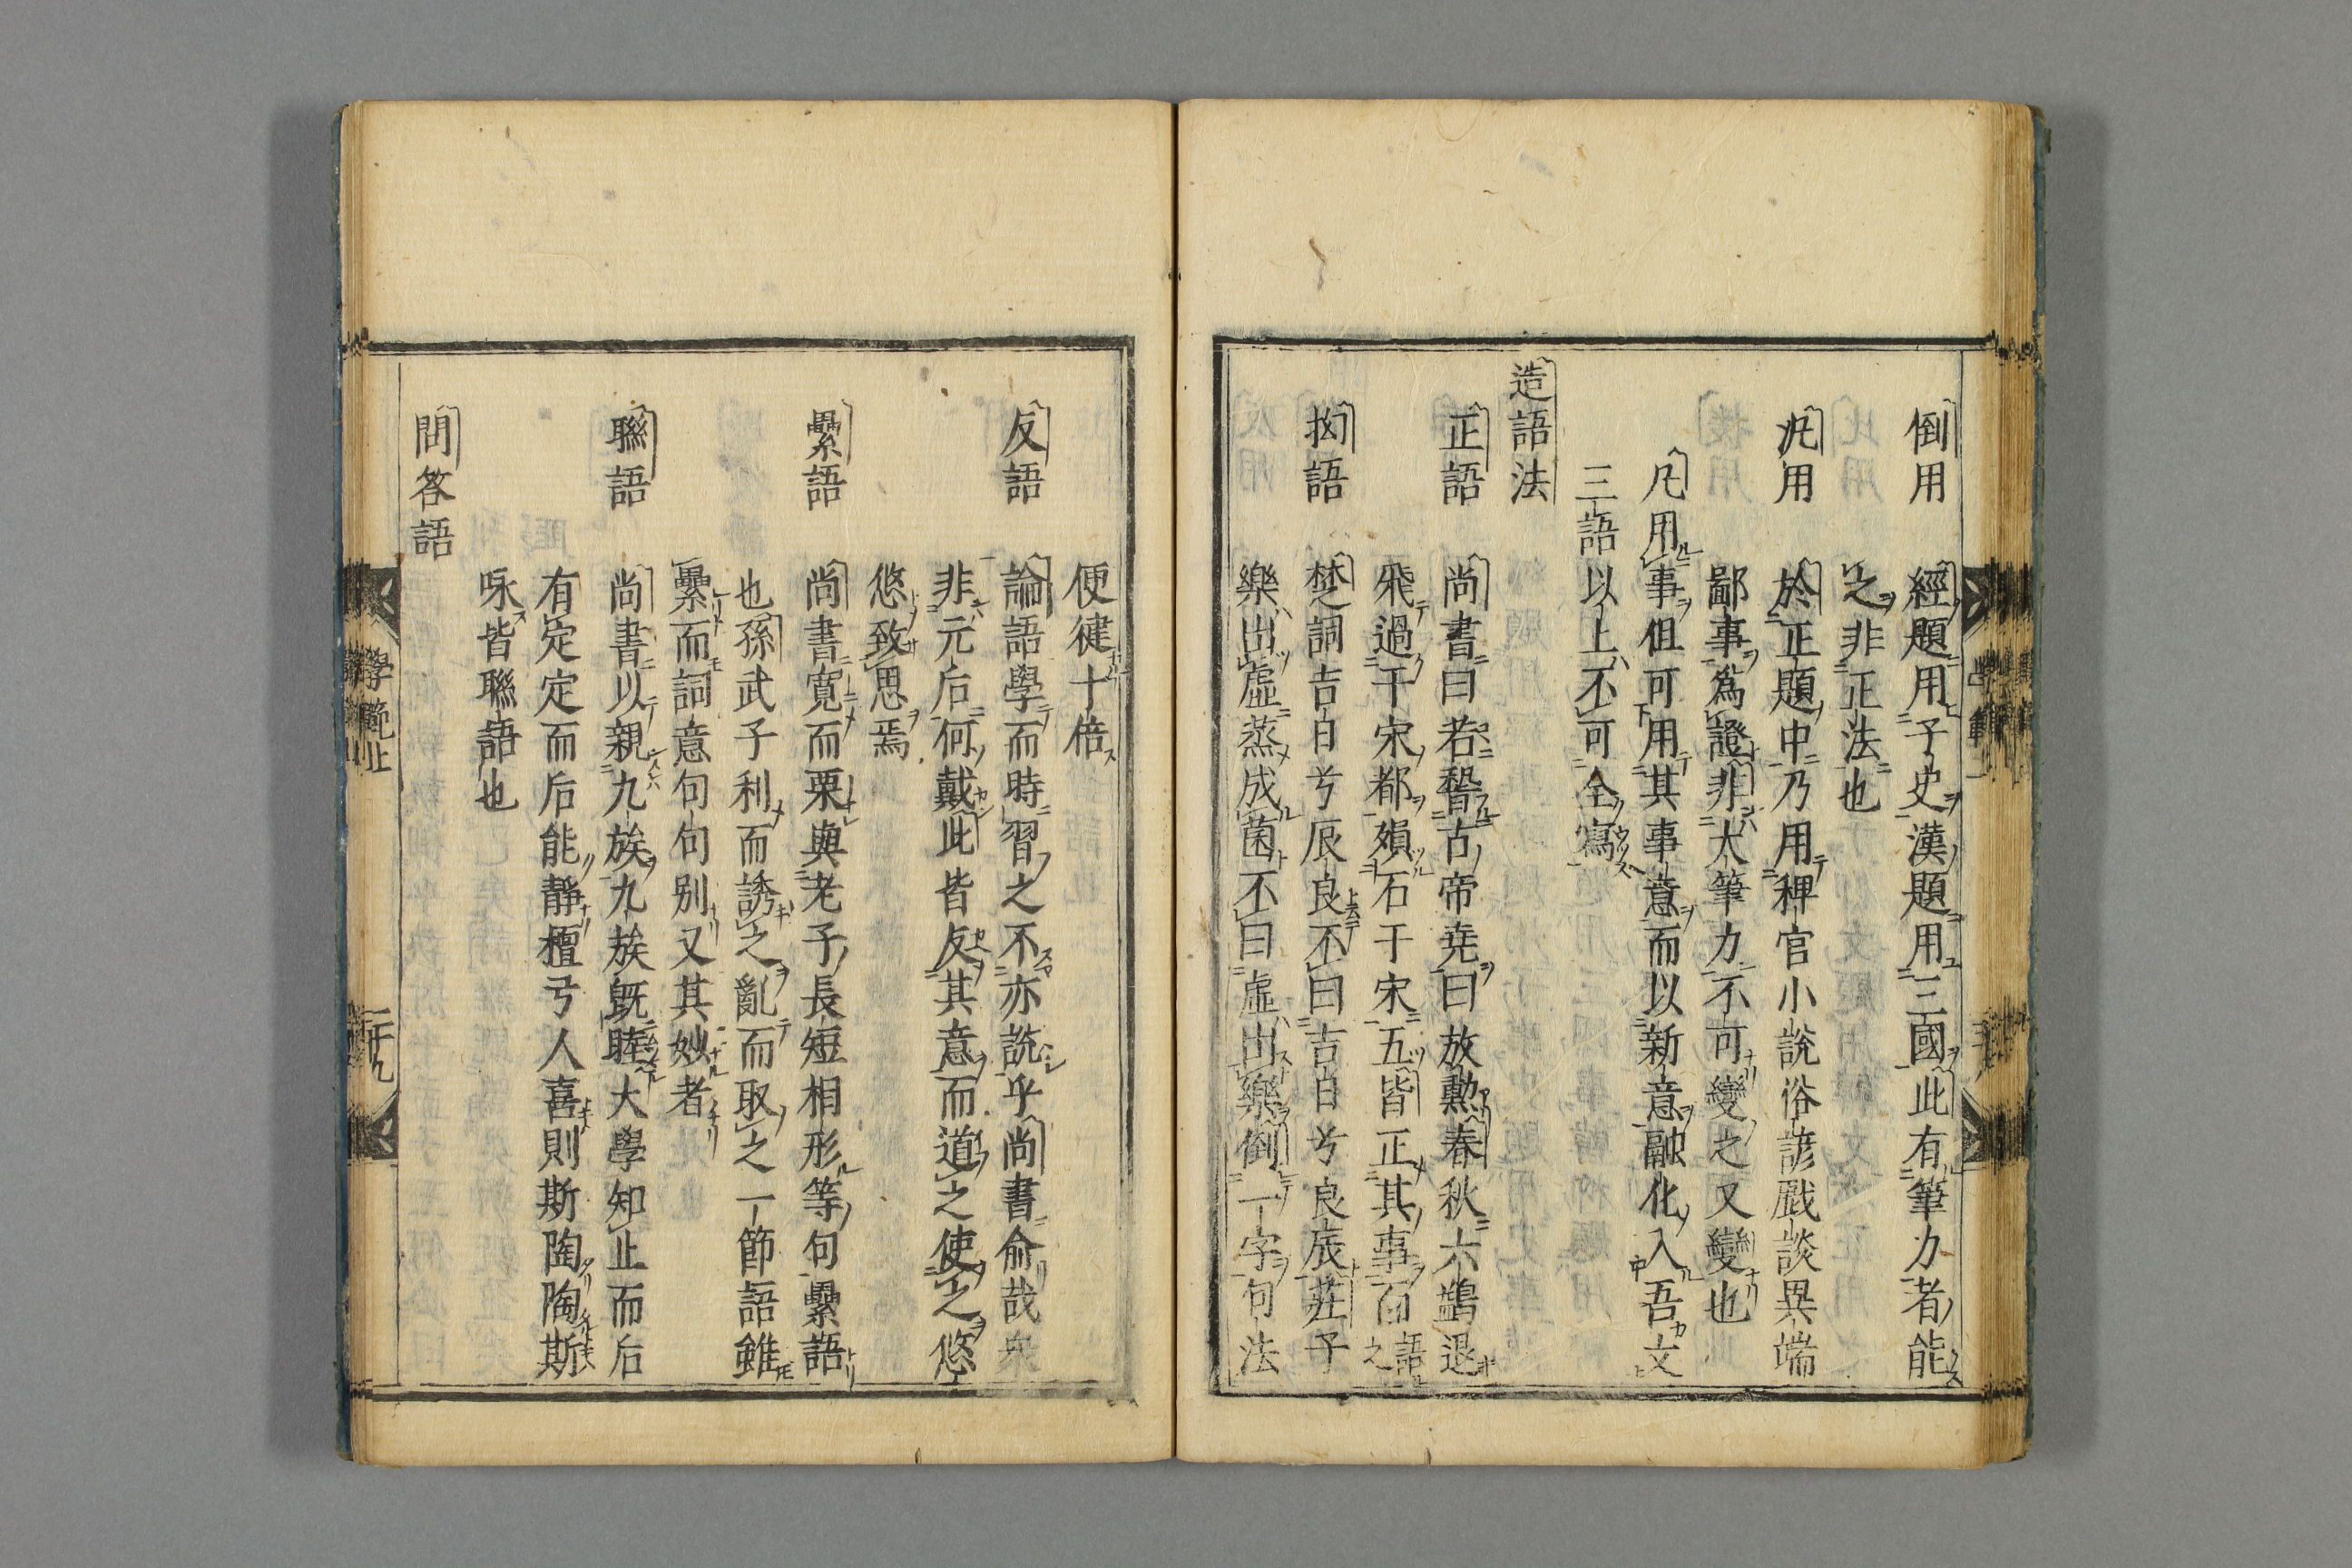 倒用 經題用子史漢題用三國此有筆力者能
之非正法也
汎用 於正題中乃用稗官小說俗諺戯談異端
鄙事爲證非大筆力不可變之又變也
凡用事但可用其事意而以新意融化入吾文
三語以上不可全寫
造語法
正語 尚書曰若稽古帝尭曰放勲春秋六鷁退
飛過于宋都殞石于宋五皆正其事而語之
拗語 楚詞吉日兮辰良不曰吉日兮良辰莊子
樂出虛蒸成菌不曰虛出樂倒一字句法
便健十倍
反語 論語學而時習之不亦說乎尚書俞哉衆
非元后何戴此皆反其意而道之使之悠
悠致思焉
纍語 尚書寬而栗與老子長短相形等句纍語
也孫武子利而誘之亂而取之一節語雖
纍而詞意句句別又其妙者
聯語 尚書以親九族九族旣睦大學知止而后
有定定而后能靜檀弓人喜則斯陶陶斯
咏皆聯語也
問答語
學範上
二十九